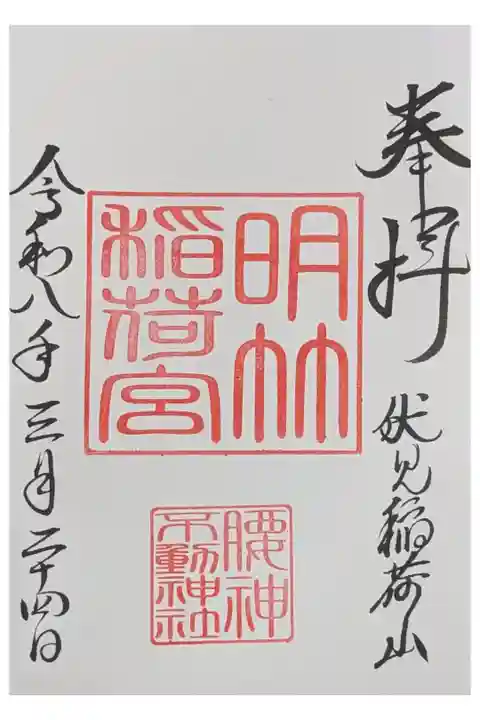 奉拝
伏見稲荷山
明竹
稲荷宮
腰神
不動神社
令和八年三月二十四日